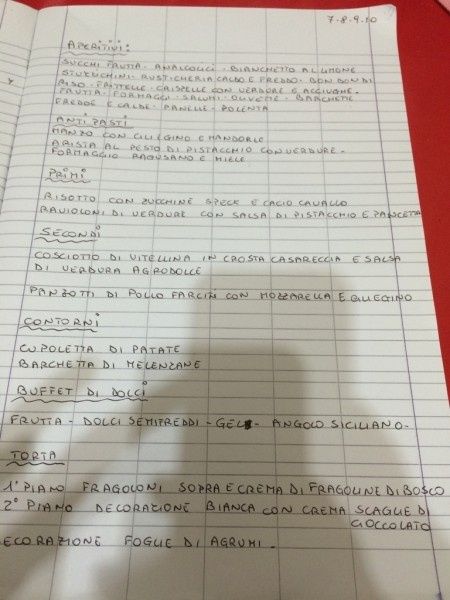 7-8-9-10
APERITIVI:
SUCCHI FRUTTA - ANALCOLICI - BIANCHETTO AL LIMONE
STUZZICHINI - RUSTICHERIA CALDO E FREDDO - BON BON DI
RISO - FRITTELLE - CRISPELLE CON VERDURE E ACCIUGHE -
FRUTTA - FORMAGGI - SALUMI - OLIVEME - BARCHETTE
FREDDE E CALDE - PANELLE - POLENTA
ANTIPASTI
MANZO CON CILIEGINO E MANDORLE
ARISTA AL PESTO DI PISTACCHIO CON VERDURE -
FORMAGGIO RAGUSANO E MIELE
PRIMI
RISOTTO CON ZUCCHINE SPECK E CACIO CAVALLO
RAVIOLONI DI VERDURE CON SALSA DI PISTACCHIO E PANCETTA
SECONDI
COSCIOTTO DI VITELLINA IN CROSTA CASARECCIA E SALSA
DI VERDURA AGRODOLCE
PANZOTTI DI POLLO FARCITI CON MOZZARELLA E
CONTORNI
CUPOLETTA DI PATATE
BARCHETTA DI MELENZANE
BUFFET DI DOLCI
FRUTTA - DOLCI SEMIFREDDI - - ANGOLO SICILIANO -
TORTA
1° PIANO FRAGOLONI SOPRA E CREMA DI FRAGOLINE DI BOSCO
2° PIANO DECORAZIONE BIANCA CON CREMA SCAGLIE DI
CIOCCOLATO
ECORAZIONE FOGLIE DI AGRUMI -